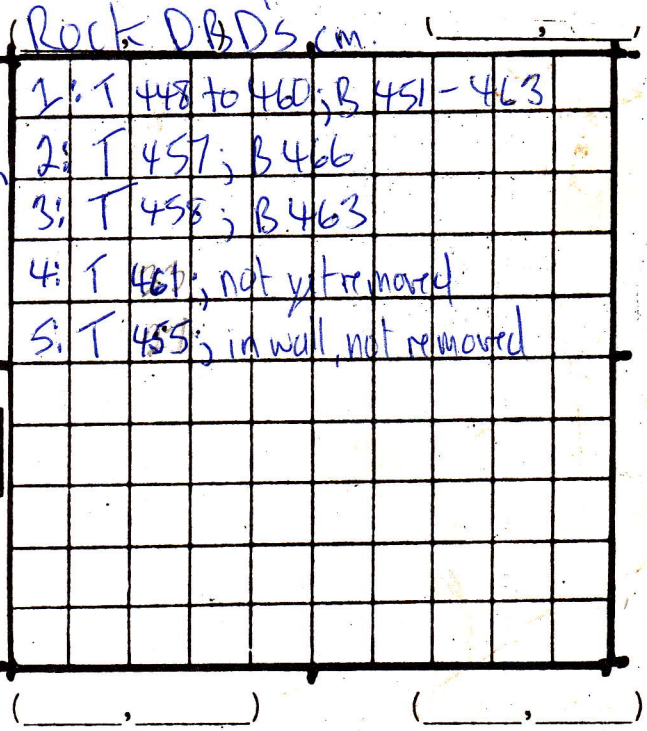 Rock DBD's cm.
1: T 448 to 460; B 451 - 463
2: T 457; B 466
3: T 458; B 463
4: T 461; not yet removed
5: T 455; in wall, not removed